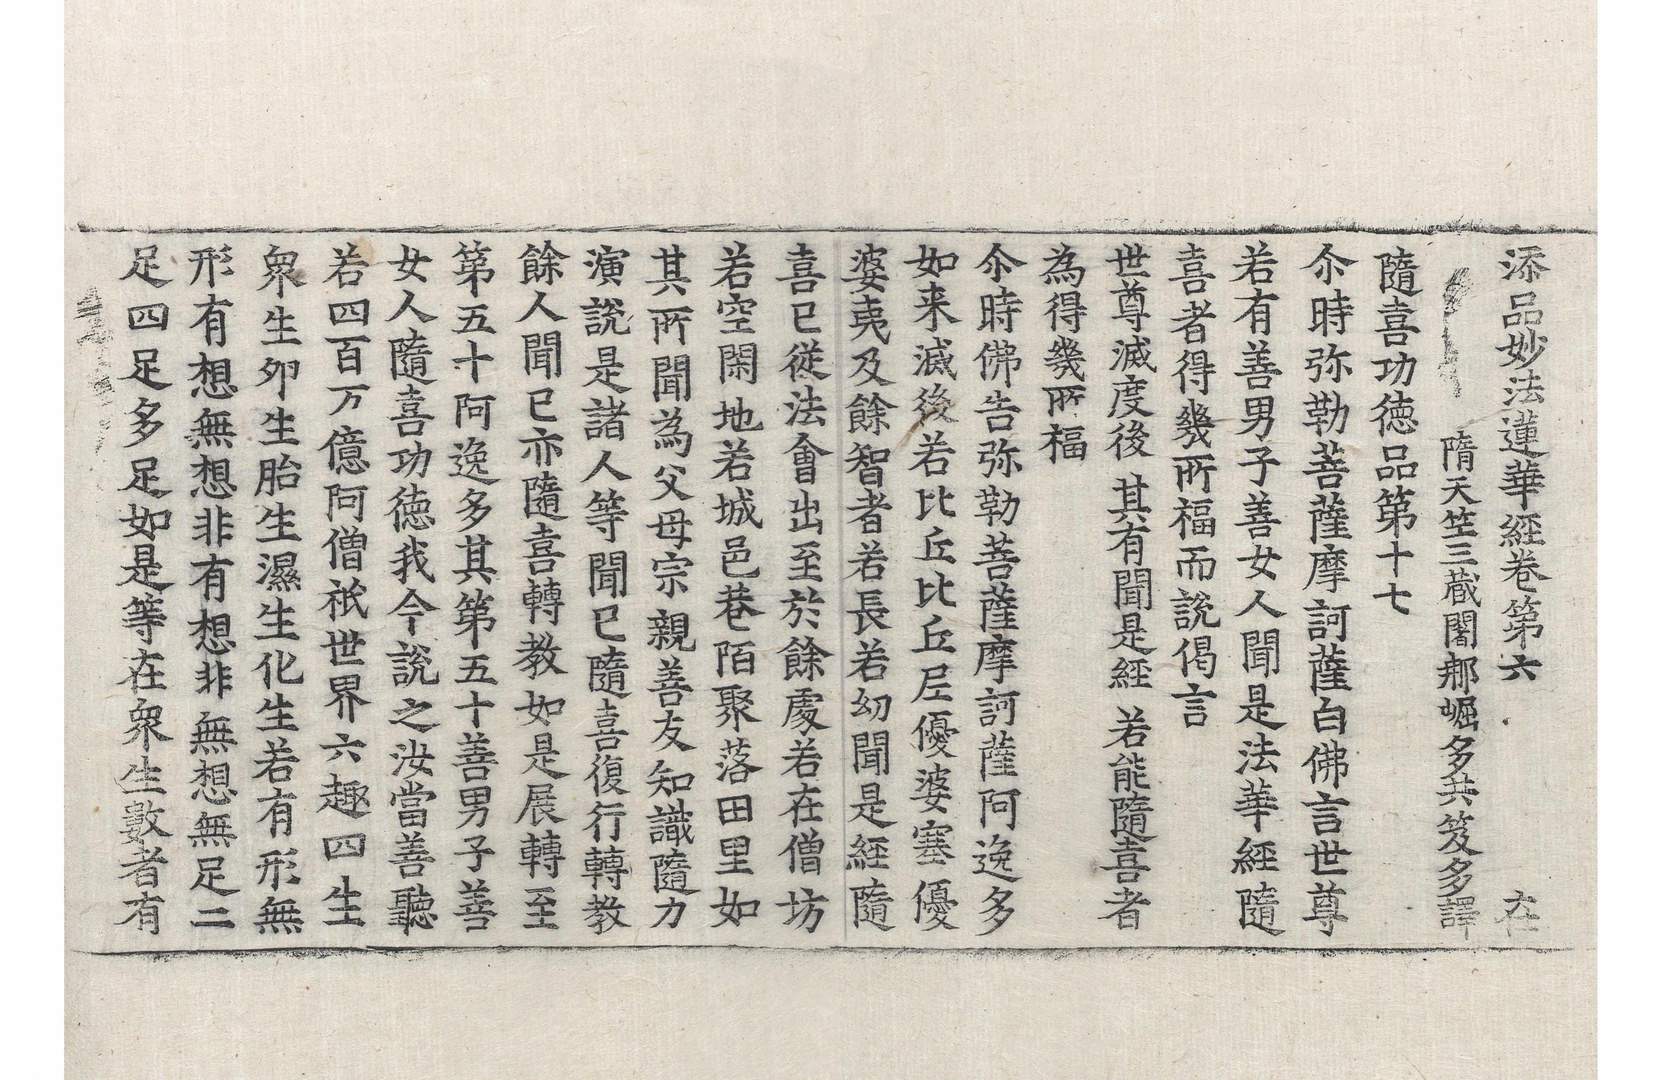 添品妙法蓮華經卷第六 在
隋天竺三藏闍那崛多共笈多譯
隨喜功德品第十七
尒時弥勒菩薩摩訶薩白佛言世尊
若有善男子善女人聞是法華經隨
喜者得幾所福而說偈言
世尊滅度後 其有聞是經 若能隨喜者
為得幾所福
尒時佛告弥勒菩薩摩訶薩阿逸多
如来滅後若比丘比丘尼優婆塞優
婆夷及餘智者若長若幼聞是經隨
喜已從法會出至於餘處若在僧坊
若空閑地若城邑巷陌聚落田里如
其所聞為父母宗親善友知識隨力
演說是諸人等聞已隨喜復行轉教
餘人聞已亦隨喜轉教如是展轉至
第五十阿逸多其第五十善男子善
女人隨喜功德我今說之汝當善聽
若四百万億阿僧祇世界六趣四生
衆生卵生胎生濕生化生若有形無
形有想無想非有想非無想無足二
足四足多足如是等在衆生數者有